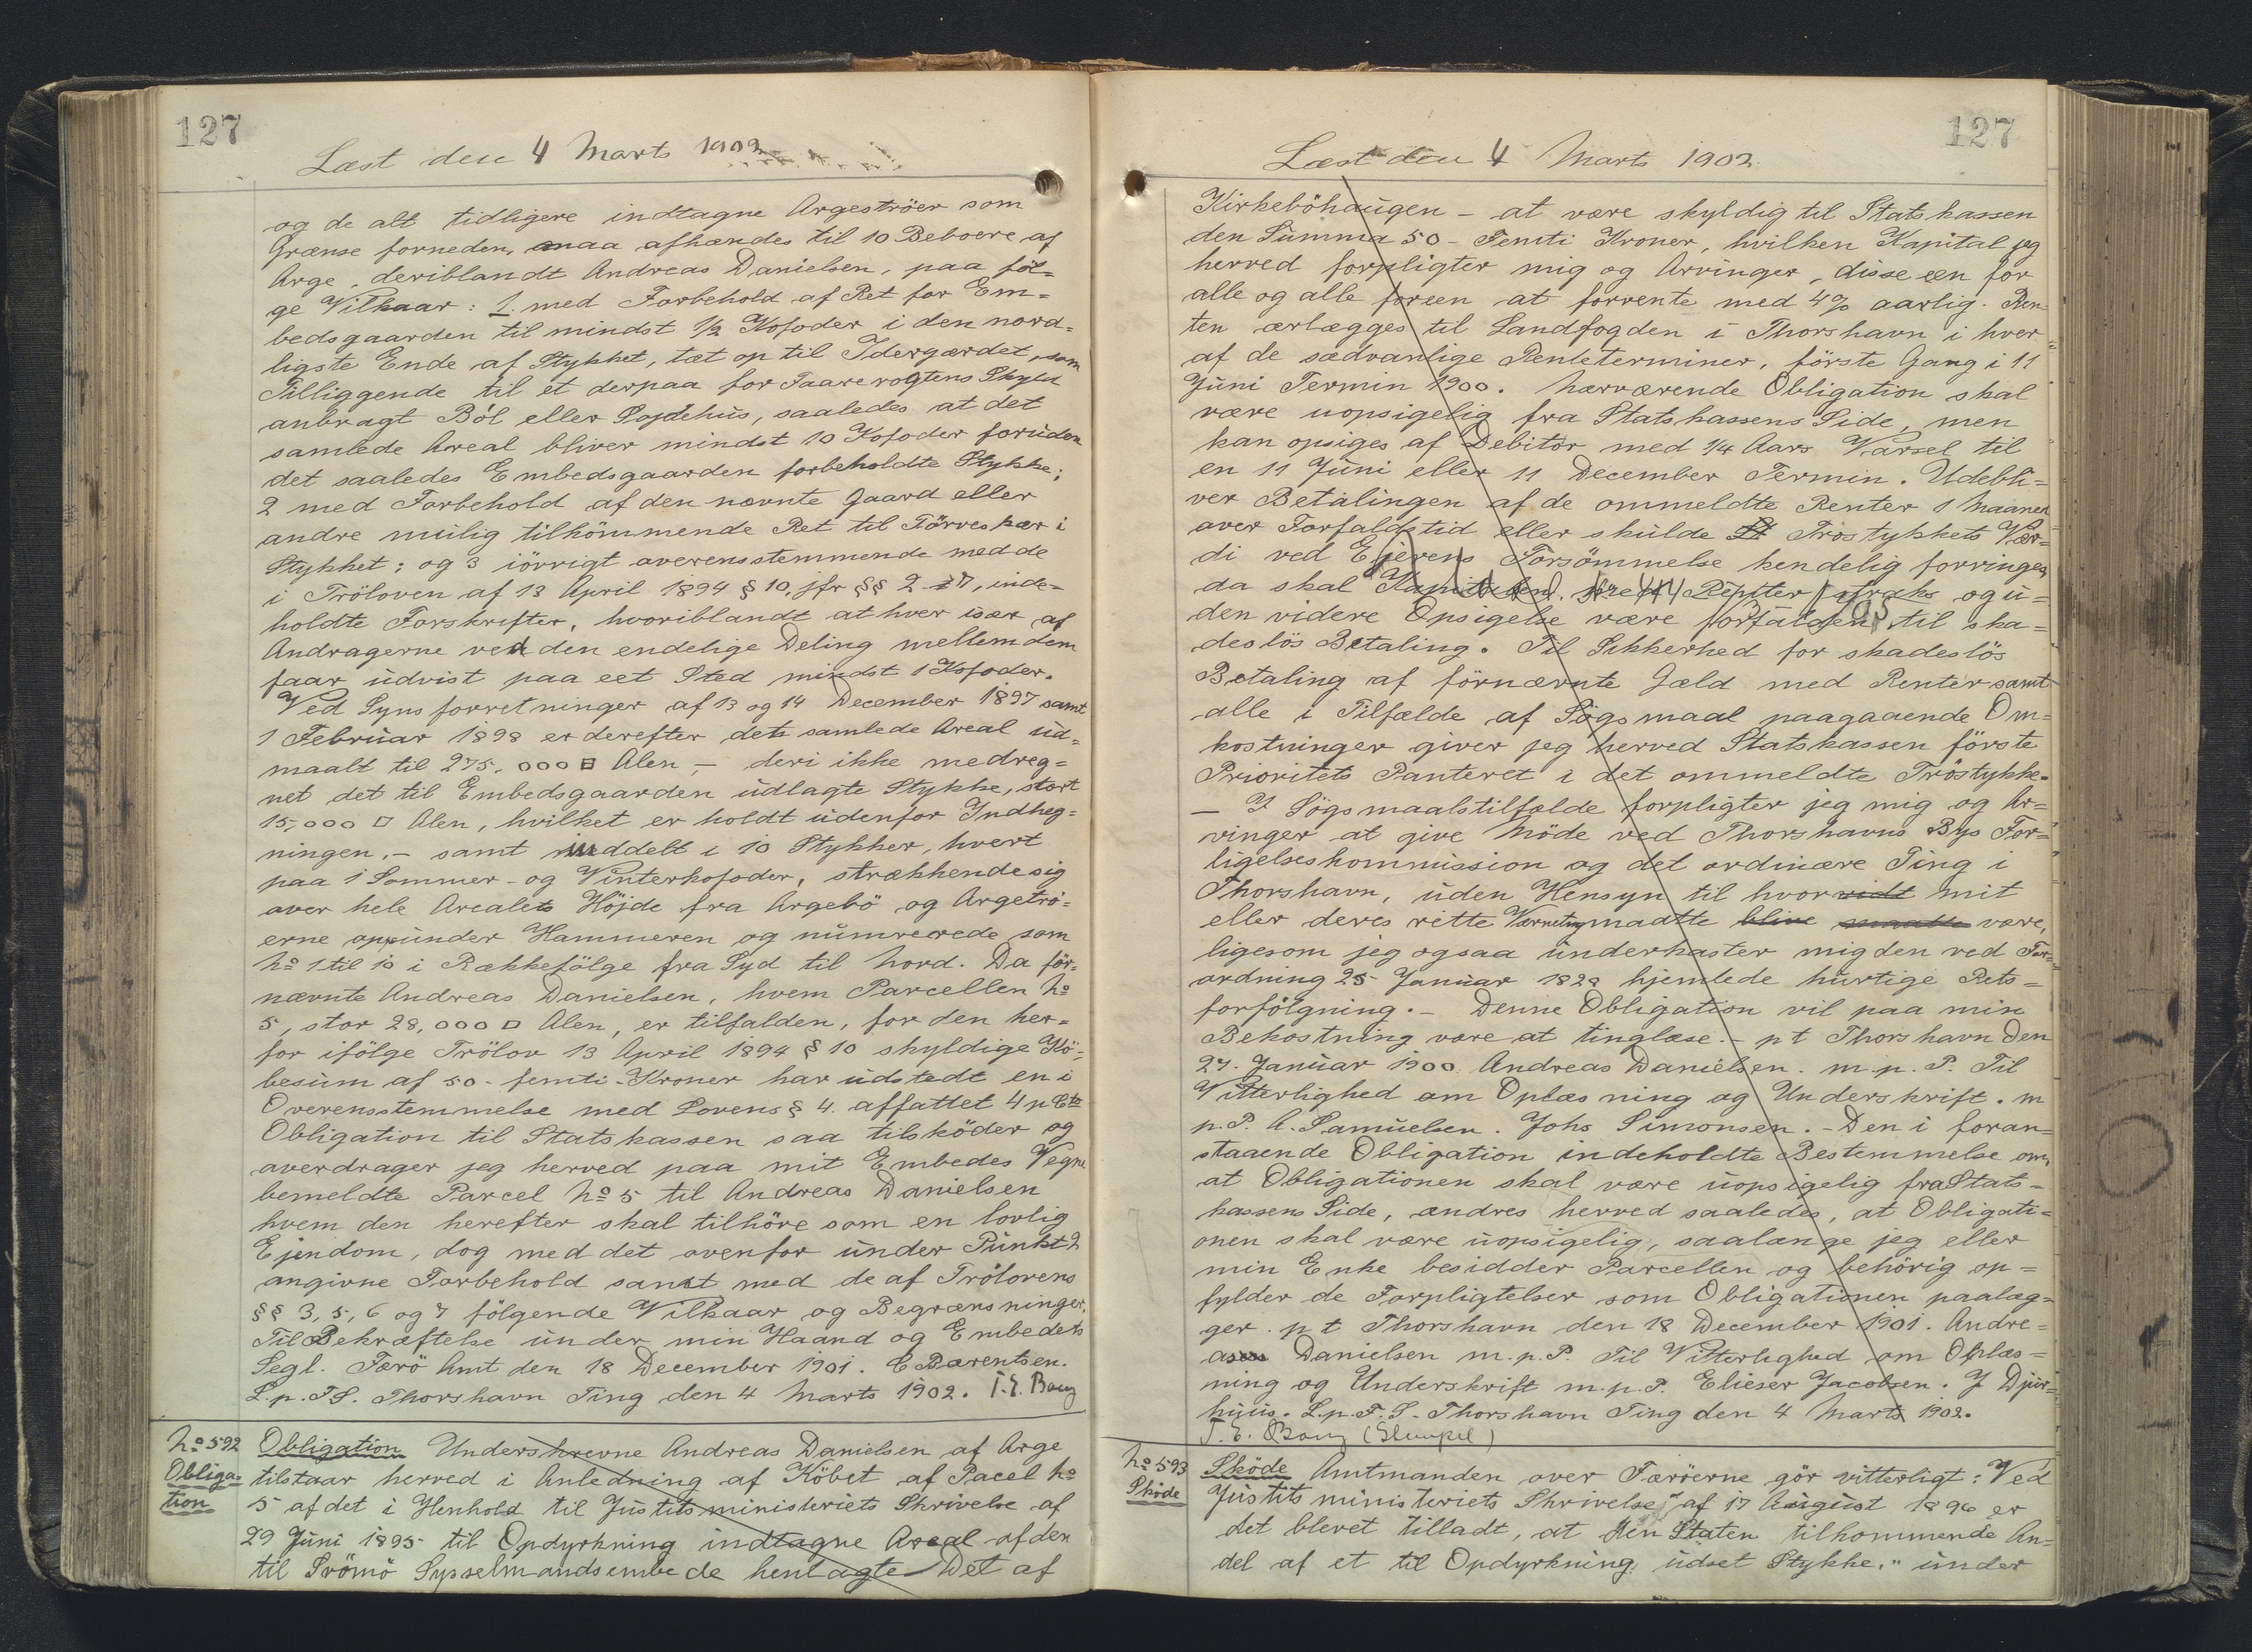 127
Læst den 4 Marts 1902
og de alt tidligere indtagne Argeströer som
Grænse forneden, maa afhændes til 10 Beboere af
Arge, deriblandt Andreas Danielsen, paa föl=
ge Vilkaar: 1. med Forbehold af Ret for Em=
bedsgaarden til mindst 1/2 Kofoder i den nord=
ligste Ende af Stykket, tæt op til Idergærdet, som
Tilliggende til et derpaa for Faarerogtens Skyld
anbragt Ból eller Soptehus, saaledes at det
samlede Areal bliver mindst 10 Kofoder foruden
det saaledes Embedsgaarden forbeholdte Stykke;
2 med Forbehold af den nævnte Gaard eller
andre mulig tilkommende Ret til Törveskær i
Stykket; og 3 iövrigt overensstemmende med de
i Tröloven af 13 April 1894 § 10, jfr §§ 2-7, inde=
holdte Forskrifter, hvoriblandt at hver især af
Andragerne ved den endelige Deling mellem dem
faar udvist paa eet Sted mindst 1 Kofoder.
Ved Synsforretninger af 13 og 14 December 1897 samt
1 Februar 1898 er derefter det samlede Areal ud=
maalt til 275,000 □ Alen, – deri ikke medreg=
net det til Embedsgaarden udlagte Stykke, stort
15,000 □ Alen, hvilket er holdt udenfor Indheg=
ningen, – samt inddelt i 10 Stykker, hvert
paa 1 Sommer- og Vinterkofoder, strækkende sig
over hele Arealets Höjde fra Argebö og Argetrö=
erne op under Hammeren og numrerede som
No 1 til 10 i Rækkefölge fra Syd til Nord. Da för=
nævnte Andreas Danielsen, hvem Parcellen No
5, stor 28,000 □ Alen, er tilfalden, for den her=
for ifölge Trölov 13 April 1894 § 10 skyldige Kö=
besum af 50 - femti - Kroner har udstedt en i
Overensstemmelse med Lovens § 4 affattet 4 p Cts
Obligation til Statskassen saa tilsköder og
overdrager jeg herved paa mit Embedes Vegne
bemeldte Parcel No 5 til Andreas Danielsen
hvem den herefter skal tilhöre som en lovlig
Ejendom, dog med det ovenfor under Punkt 2
angivne Forbehold samt med de af Trölovens
§§ 3, 5, 6 og 7 fölgende Vilkaar og Begrænsninger.
Til Bekræftelse under min Haand og Embedets
Segl. Færö Amt den 18 December 1901. C Bærentsen.
L.p. T S. Thorshavn Ting den 4 Marts 1902. T. E. Bang
No 592 Obligation Underskrevne Andreas Danielsen af Arge
Obliga= tilstaar herved i Anledning af Köbet af Pacel No
tion 5 af det i Henhold til Justitsministeriets Skrivelse af
29 Juni 1895 til Opdyrkning indtagne Areal af den
til Srömö Sysselmandsembede henlagte Det af
127
Læst den 4 Marts 1902
Kirkeböhaugen – at være skyldig til Statskassen
den Summa 50 - Femti Kroner, hvilken Kapital jeg
herved forpligter mig og Arvinger, disse een for
alle og alle foreen at forrente med 4% aarlig. Ren
ten erlægges til Landfogden i Thorshavn i hver
af de sædvanlige Renteterminer, förste Gang i 11
Juni Termin 1900. Nærværende Obligation skal
være uopsigelig fra Statskassens Side, men
kan opsiges af Debitor med 1/4 Aars Varsel til
en 11 Juni eller 11 December Termin. Udebli=
ver Betalingen af de ommeldte Renter 1 Maaned
over Forfaldstid eller skulde Tröstykkets Vær=
di ved Ejerens Forsömmelse kendelig forringes
da skal Kapitalen Renter straks og u=
den videre Opsigelse være forfalden til ska=
deslös Betaling. Til Sikkerhed for skadeslös
Betaling af förnævnte Gæld med Renter samt
alle i Tilfælde af Sögsmaal paagaaende Om=
kostninger giver jeg herved Statskassen förste
Prioritets Panteret i det ommeldte Tröstykke.
– I Sögsmaalstilfælde forpligter jeg mig og Ar=
vinger at give Möde ved Thorshavns Bys For=
ligelseskommission og det ordinære Ting i
Thorshavn, uden Hensyn til hvor vidt mit
eller deres rette Værneting maatte blive maatte være,
ligesom jeg ogsaa underkaster mig den ved For=
ordning 25 Januar 1828 hjemlede hurtige Rets=
forfölgning. – Denne Obligation vil paa min
Bekostning være at tinglæse. – p t Thorshavn Den
27. Januar 1900. Andreas Danielsen. m. p. P. Til
Vitterlighed om Oplæsning og Underskrift. m
p. P. A. Samuelsen. Johs Simonsen. – Den i foran=
staaende Obligation indeholdte Bestemmelse om,
at Obligationen skal være uopsigelig fra Stats=
kassens Side, ændres herved saaledes, at Obligati=
onen skal være uopsigelig, saalænge jeg eller
min Enke besidder Parcellen og behörig op=
fylder de Forpligtelser som Obligationen paalæg=
ger. p t Thorshavn den 18 December 1901. Andre=
as Danielsen m. p. P. Til Vitterlighed om Oplæs=
ning og Underskrift m. p. P. Elieser Jacobsen. J Djur=
huus. L.p. F. S. Thorshavn Ting den 4 Marts 1902.
T. E. Bang (Stempel)
No 593 Sköde Amtmanden over Færöerne gör vitterligt: Ved
Sköde Justitsministeriets Skrivelse af 17 August 1896 er
det blevet tilladt, at den Staten tilkommende An=
del af et til Opdyrkning udset Stykke, " under